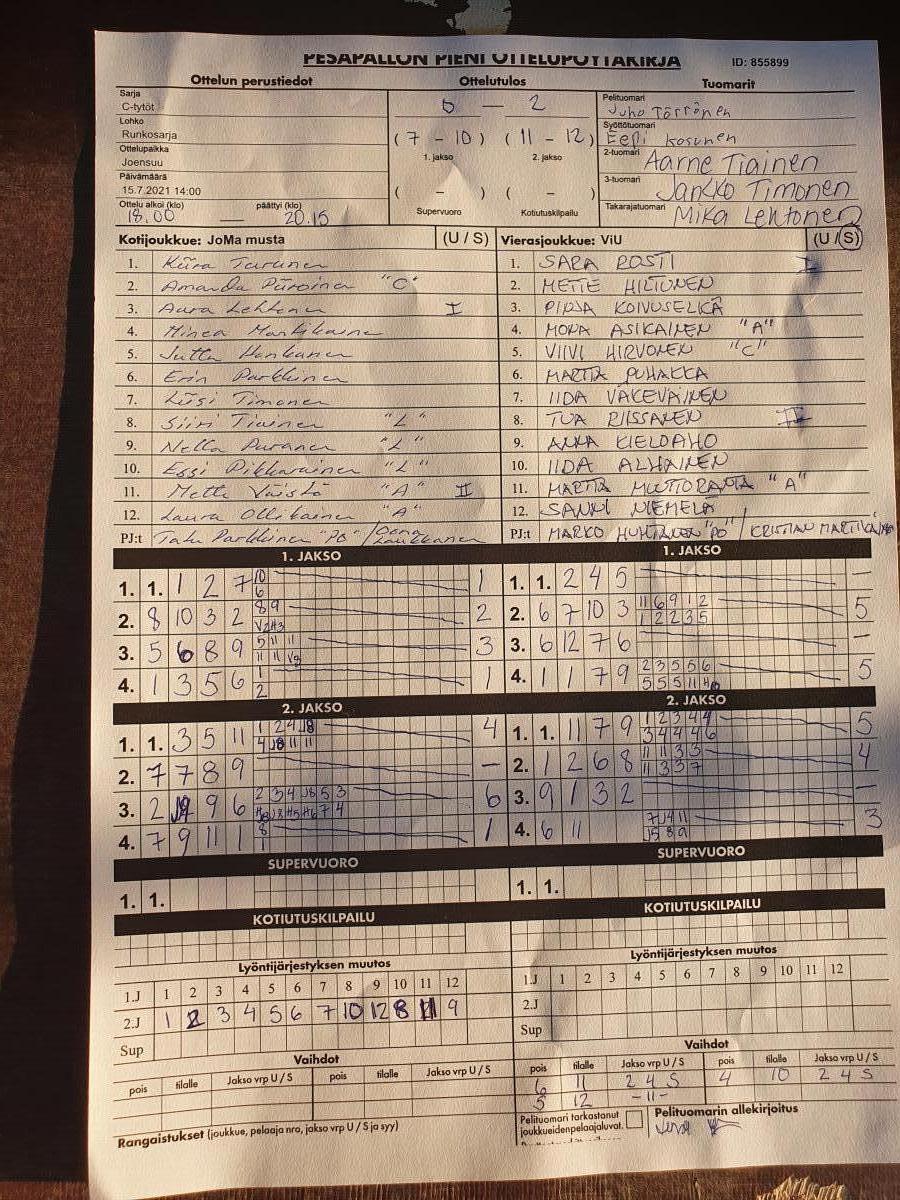 PESÄPALLON PIENI OTTELUPÖYTÄKIRJA
ID: 855899
Ottelun perustiedot
Ottelutulos
Tuomarit
Sarja
C-tytöt
Lohko
Runkosarja
Ottelupaikka
Joensuu
Päivämäärä
15.7.2021 14:00
Ottelu alkoi (klo) päättyi (klo)
18.00 — 20.15
0 — 2
(7 - 10) (11 - 12)
1. jakso 2. jakso
( - ) ( - )
Supervuoro Kotiutuskilpailu
Pelituomari
Juho Törrönen
Syöttötuomari
Eepi Kosunen
2-tuomari
Aarne Tiainen
3-tuomari
Jarkko Timonen
Takarajatuomari
Mika Lehtonen
Kotijoukkue: JoMa musta (U / S)
1. Kiira Turunen
2. Amanda Piiroinen "C"
3. Aura Lehtonen I
4. Minea Martikainen
5. Jutta Honkanen
6. Erin Parkkinen
7. Liisi Timonen
8. Siiri Tiainen "L"
9. Nella Puranen "L"
10. Essi Pikkarainen "L"
11. Mette Väistö "A" II
12. Laura Ollikainen "A"
PJ:t Parkkinen "PO" / Laukkanen
Vierasjoukkue: ViU (U / S)
1. SARA ROSTI I
2. METTE HILTUNEN
3. PINJA KOIVUSELKÄ
4. MONA ASIKAINEN "A"
5. VIIVI HIRVONEN "C"
6. MARTTA PUHAKKA
7. IIDA VÄKEVÄINEN
8. TUA RIISSANEN II
9. ANNA KIELOAHO
10. IIDA ALHAINEN
11. MARTTA MUTTORANTA "A"
12. SANNI NIEMELÄ
PJ:t MARKO HUHTANEN "PO" / KRISTIAN MARTIKAINEN
1. JAKSO
1. 1. 1 2 7 10 1
6
2. 8 10 3 2 8 9 2
V2 H3
3. 5 6 8 9 5 11 11 3
11 11 V3
4. 1 3 5 6 1 1
2
1. JAKSO
1. 1. 2 4 5 –
2. 6 7 10 3 11 6 9 1 2 5
1 2 2 3 5
3. 6 12 7 6 –
4. 1 1 7 9 2 3 5 5 6 5
5 5 5 11
2. JAKSO
1. 1. 3 5 11 1 2 4 J8 4
4 J8 11 11
2. 7 7 8 9 –
3. 2 9 6 2 3 4 J8 5 3 6
7 4
4. 7 9 11 1 8 1
1
2. JAKSO
1. 1. 11 7 9 1 2 3 4 4 5
3 4 4 4 6
2. 1 2 6 8 11 11 3 3 4
11 3 3 7
3. 9 1 3 2 –
4. 6 11 7 J4 11 3
J5 8 9
SUPERVUORO
1. 1.
SUPERVUORO
1. 1.
KOTIUTUSKILPAILU
Lyöntijärjestyksen muutos
1.J 1 2 3 4 5 6 7 8 9 10 11 12
2.J 1 2 3 4 5 6 7 10 12 8 11 9
Sup
Vaihdot
pois tilalle Jakso vrp U / S pois tilalle Jakso vrp U / S
Rangaistukset (joukkue, pelaaja nro, jakso vrp U / S ja syy)
KOTIUTUSKILPAILU
Lyöntijärjestyksen muutos
1.J 1 2 3 4 5 6 7 8 9 10 11 12
2.J
Sup
Vaihdot
pois tilalle Jakso vrp U / S pois tilalle Jakso vrp U / S
6 11 2 4 S 4 10 2 4 S
5 12 -11-
Pelituomari tarkastanut
joukkueidenpelaajaluvat.
Pelituomarin allekirjoitus